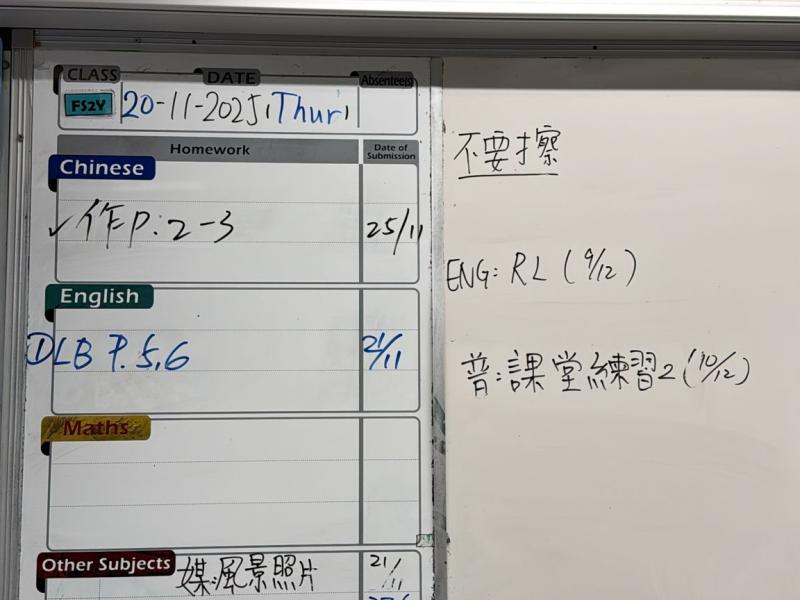 CLASS DATE Absentee(s)
FS2Y 20-11-2025 (Thur)
Homework Date of Submission
Chinese
✓作P.:2-3 25/11
English
DLB P.5,6 21/11
Maths
Other Subjects 媒:風景照片 21/11
不要擦
ENG: RL (9/12)
普:課堂練習2(10/12)